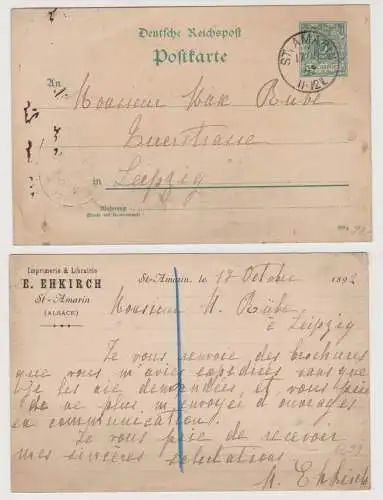 Deutsche Reichspost
Postkarte
ST. AMARIN
11-12
An
Monsieur Max Rübe
in Leipzig
Wohnung
Imprimerie & Librairie
E. EHKIRCH
St-Amarin
(ALSACE)
St-Amarin, le 17 Octobre 1892
Monsieur M. Rübe,
à Leipzig
Je vous renvoie des brochures
que vous m'aviez expédiées sans que
je les aie demandées et vous prie
de ne plus m'envoyer d'ouvrages
en communication.
Je vous prie de recevoir
mes sincères salutations
Ehkirch